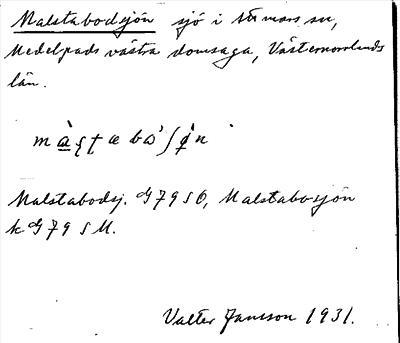 Malstabodsjön sjö i Stömars sn,
Medelpads västra domsaga, Västernorrlands
län.
Malstabodsj. G 79 s Ö, Malstabosjön
k G 79 s M.
Valter Jansson 1931.